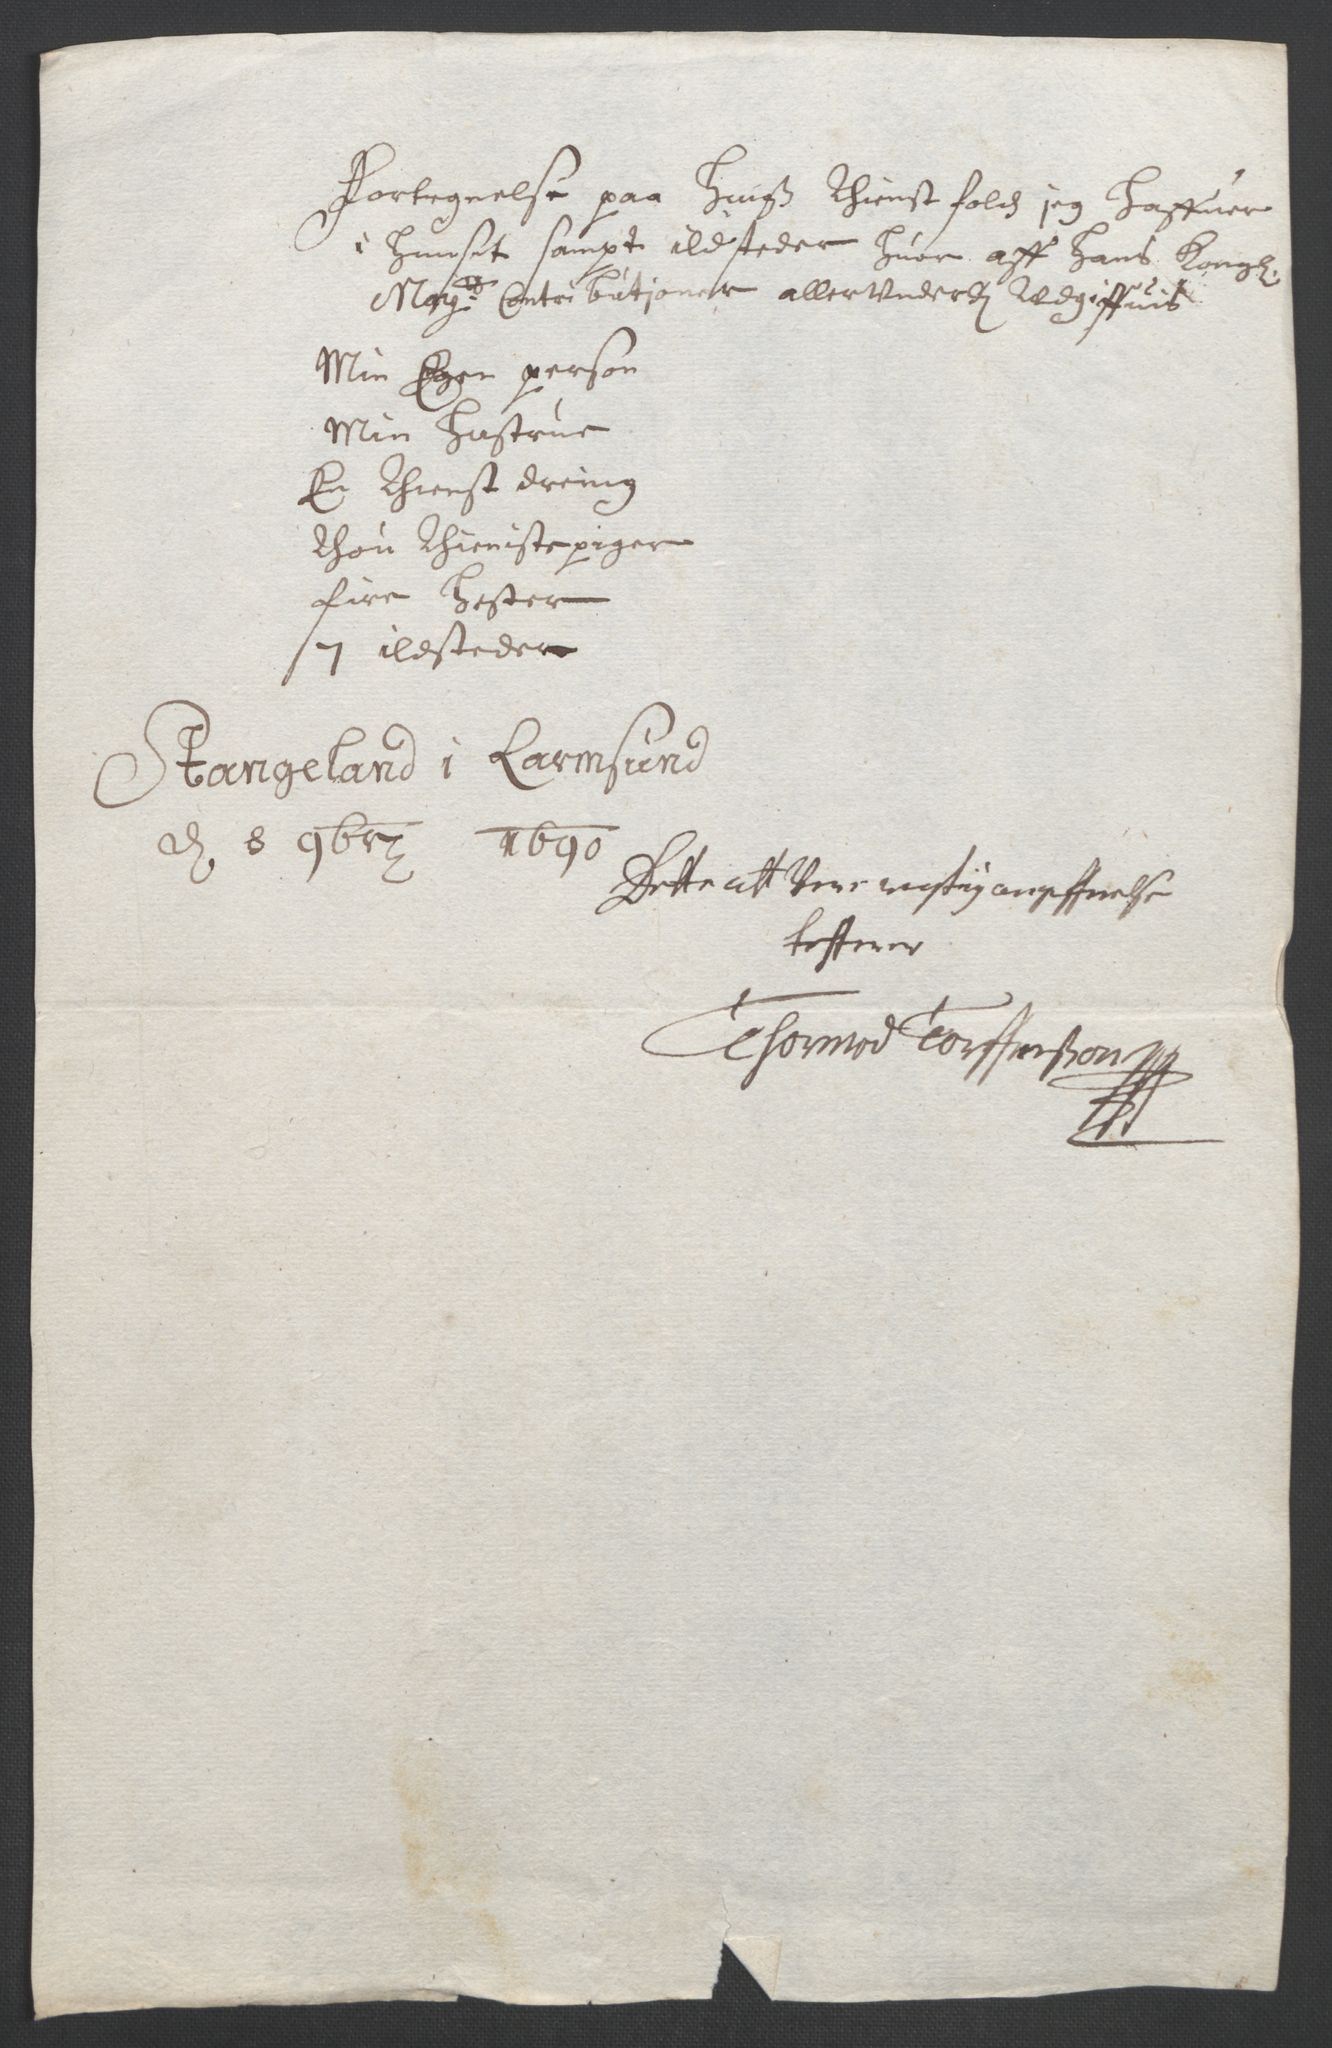 Fortegnelse paa huiß thienst folch jeg haffuer
i huuset sampt ildsteder huor aff hans Kongl:
May:ts Contributjoner allerunderd: udgiffuis
Min Egen person
Min hustrue
En thienst dreing
thou thieniste piger
fire hester
7 ildsteder
Stangeland i Carmsund
d. 8 9brs 1690
Dette att Were rigtig angiffuelse
testerer
Thormod Torffueßon